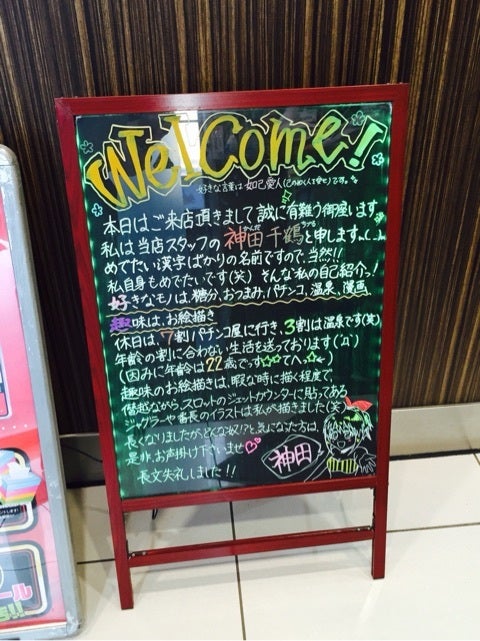 Welcome!
好きな言葉は如己愛人(己の如く人を愛せ)です。
本日はご来店頂きまして誠に有難う御座います
私は当店スタッフの神田千鶴と申しますm(_ _)m
めでたい漢字ばかりの名前ですので、当然!!
私自身もめでたいです(笑) そんな私の自己紹介っ!
好きなモノは、糖分、おつまみ、パチンコ、温泉、漫画
趣味は、お絵描き
休日は、7割パチンコ屋に行き、3割は温泉です(笑)
年齢の割に合わない生活を送っております(´Д`)
(因みに年齢は22歳でっす☆☆てへっ☆)
趣味のお絵描きは、暇な時に描く程度で、
僭越ながら、スロットのジェットカウンターに貼ってある
ジャグラーや番長のイラストは私が描きました(笑)
長くなりましたが、どんな奴!?と、気になった方は、
是非、お声掛け下さいませ♡♡
長文失礼しました!!
神田